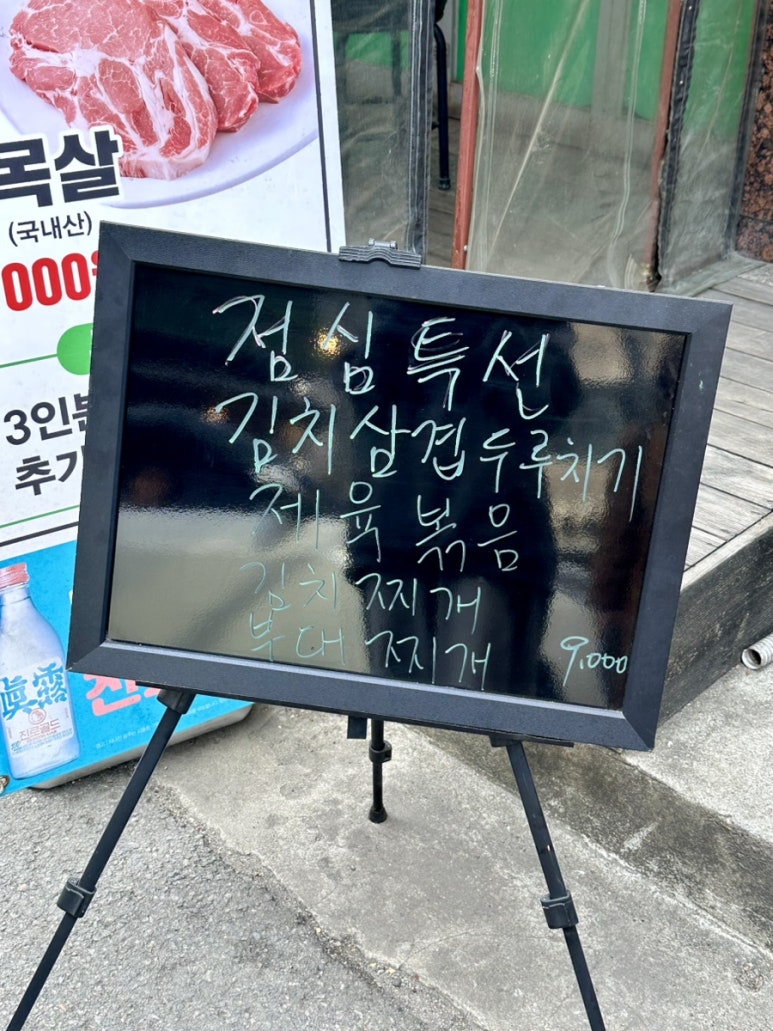 목살
(국내산)
000
3인분
추가
점심특선
김치삼겹두루치기
제육볶음
김치찌개
부대찌개 9,000
眞露
진로골드